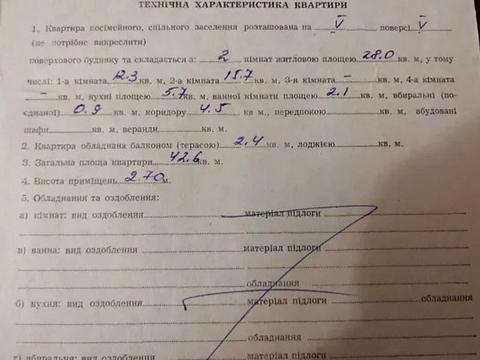 ТЕХНІЧНА ХАРАКТЕРИСТИКА КВАРТИРИ
1. Квартира посімейного, спільного заселення розташована на V поверсі V
(не потрібне викреслити)
поверхового будинку та складається з: 2 кімнат житловою площею 28.0 кв. м, у тому
числі: 1-а кімната 12.3 кв. м, 2-а кімната 15.7 кв. м. 3-я кімната – кв. м, 4-а кімната
– кв. м, кухні площею 5.7 кв. м, ванної кімнати площею 2.1 кв. м, вбиральні (по-
єднаної) 0.9 кв. м, коридору 4.5 кв. м., передпокою кв. м, вбудовані
шафи кв. м, веранди кв. м.
2. Квартира обладнана балконом (терасою) 2.4 кв. м, лоджією кв. м.
3. Загальна площа квартири 42.6 кв. м.
4. Висота приміщень 2.70 м.
5. Обладнання та оздоблення:
а) кімнат: вид оздоблення матеріал підлоги
в) ванна: вид оздоблення матеріал підлоги
обладнання
б) кухня: вид оздоблення матеріал підлоги обладнання
обладнання
г) вбиральня: вид оздоблення матеріал підлоги